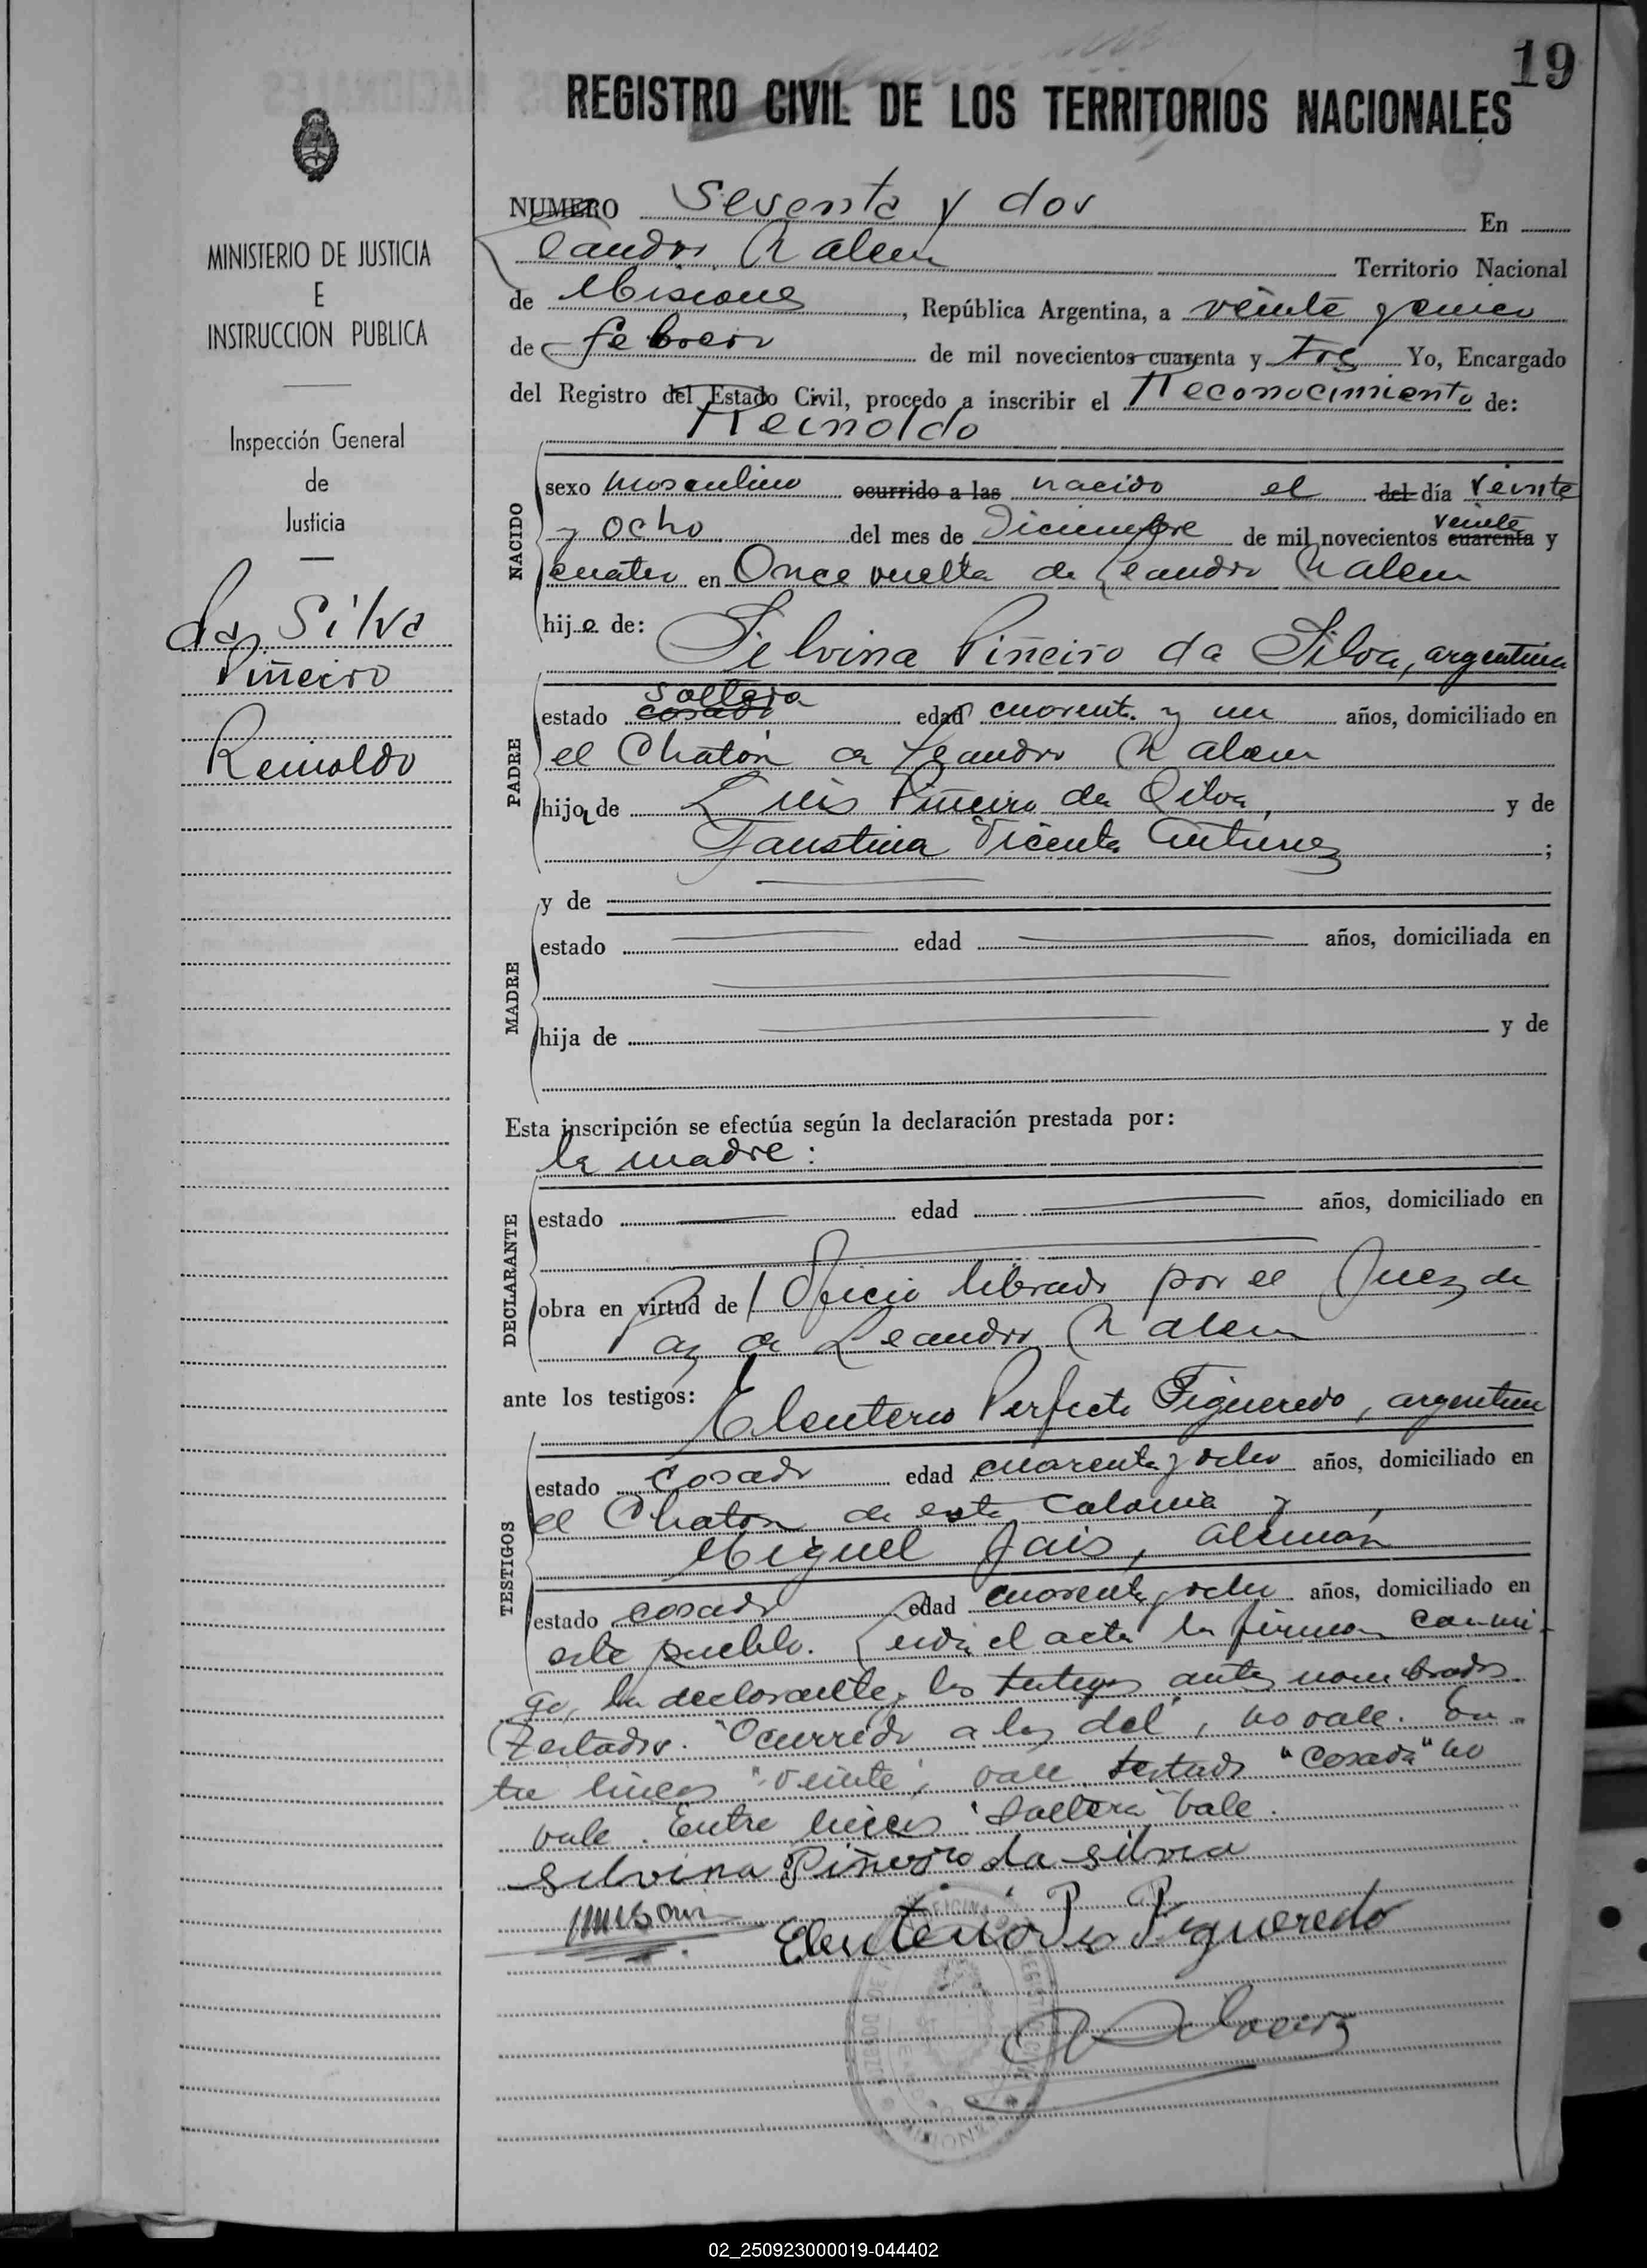 19
REGISTRO CIVIL DE LOS TERRITORIOS NACIONALES
MINISTERIO DE JUSTICIA
E
INSTRUCCION PUBLICA
Inspección General
de
Justicia
da Silva
Piñeiro
Reinoldo
NUMERO Sesenta y dos En
Leandro N Alem Territorio Nacional
de Misiones, República Argentina, a veinte y cinco
de febrero de mil novecientos cuarenta y tres Yo, Encargado
del Registro del Estado Civil, procedo a inscribir el Reconocimiento de:
Reinoldo
NACIDO
sexo masculino ocurrido a las nacido el del día veinte
y ocho del mes de Diciembre de mil novecientos cuarenta veinte y
cuatro en Once vuelta de Leandro N alem
hijo de:
Silvina Piñeiro da Silva, argentina
PADRE
estado casado soltera edad cuarenta y un años, domiciliado en
el Chatón de Leandro N alem
hijo de Luis Piñeiro da Silva, y de
Faustina Vicenta ;
MADRE
y de
estado edad años, domiciliada en
hija de y de
Esta inscripción se efectúa según la declaración prestada por:
la madre:
DECLARANTE
estado edad años, domiciliado en
obra en virtud de Oficio librado por el Juez de
Paz de Leandro N alem
ante los testigos:
Eleuterio Perfecto Figueredo, argentino
TESTIGOS
estado casado edad cuarenta y ocho años, domiciliado en
el Chatón de esta Colonia y
Miguel Jais, alemán
estado casado edad cuarenta y ocho años, domiciliado en
este pueblo. Leida el acta la firman conmi-
go, la declarante y los testigos antes nombrados
Testados. "Ocurrido a las del", no vale. En-
tre lineas "veinte", vale. testado "Casado" no
vale. Entre lineas "soltera" vale.
Silvina Piñeiro da silva
Eleuterio P. Figueredo
02_250923000019-044402